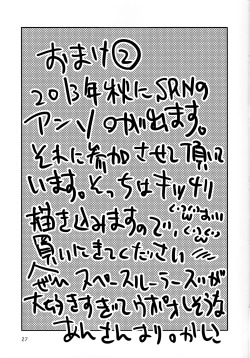 おまけ②
2013年秋にSRNの
アンソロが出ます。
それに参加させて頂いて
います。そっちはキッチリ
描き込みますので、
買いにきてください
ぜひ スペースルーラーズが
大好きすぎてウポオしそうな
あんさんより。かしこ
27